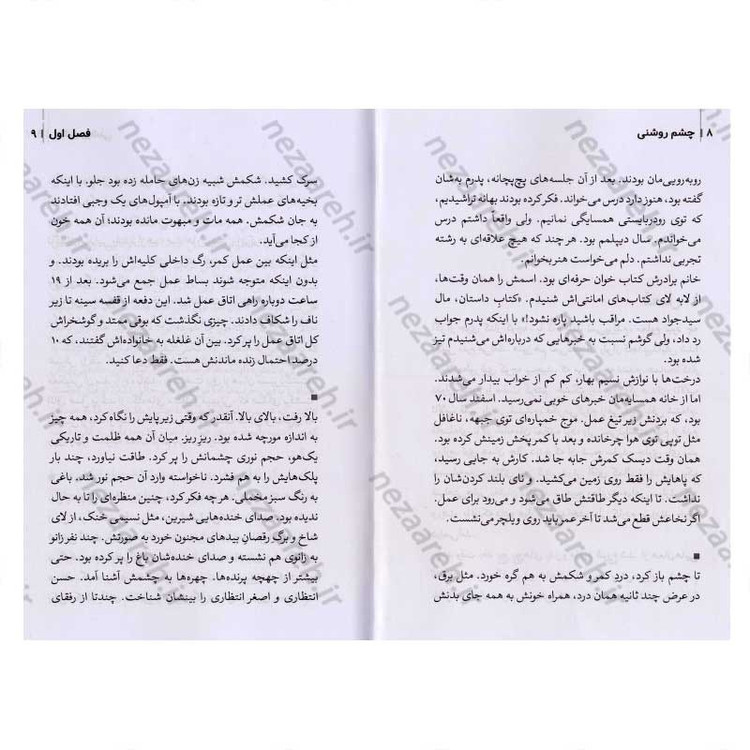 ۸ | چشم روشنی
روبه‌رویی‌مان بودند. بعد از آن جلسه‌های پچ‌پچانه، پدرم به‌شان
گفته بود، هنوز دارد درس می‌خواند. فکر کرده بودند بهانه تراشیدیم،
که توی رودربایستی همسایگی نمانیم. ولی واقعاً داشتم درس
می‌خواندم. سال دیپلمم بود. هر چند که هیچ علاقه‌ای به رشته
تجربی نداشتم. دلم می‌خواست هنر بخوانم.
خانم برادرش کتاب خوان حرفه‌ای بود. اسمش را همان وقت‌ها،
از لابه لای کتاب‌های امانتی‌اش شنیدم. «کتابِ داستان، مال
سیدجواد هست. مراقب باشید پاره نشود!» با اینکه پدرم جواب
رد داد، ولی گوشم نسبت به خبرهایی که درباره‌اش می‌شنیدم تیز
شده بود.
درخت‌ها با نوازش نسیم بهار، کم کم از خواب بیدار می‌شدند.
اما از خانه همسایه‌مان خبرهای خوبی نمی‌رسید. اسفند سال ۷۰
بود، که بردنش زیر تیغ عمل. موج خمپاره‌ای توی جبهه، ناغافل
مثل توپی توی هوا چرخانده و بعد با کمر پخش زمینش کرده بود.
همان وقت دیسک کمرش جابه جا شد. کارش به جایی رسید،
که پاهایش را فقط روی زمین می‌کشید. و نای بلند کردن‌شان را
نداشت. تا اینکه دیگر طاقتش طاق می‌شود و می‌رود برای عمل.
اگر نخاعش قطع می‌شد تا آخر عمر باید روی ویلچر می‌نشست.
تا چشم باز کرد، دردِ کمر و شکمش به هم گره خورد. مثل برق،
در عرض چند ثانیه همان درد، همراه خونش به همه جای بدنش
فصل اول | ۹
سرک کشید. شکمش شبیه زن‌های حامله زده بود جلو. با اینکه
بخیه‌های عملش تر و تازه بودند. با آمپول‌های یک وجبی افتادند
به جان شکمش. همه مات و مبهوت مانده بودند؛ آن همه خون
از کجا می‌آید.
مثل اینکه بین عمل کمر، رگ داخلی کلیه‌اش را بریده بودند. و
بدون اینکه متوجه شوند بساط عمل جمع می‌شود. بعد از ۱۹
ساعت دوباره راهی اتاق عمل شد. این دفعه از قفسه سینه تا زیر
ناف را شکاف دادند. چیزی نگذشت که بوقی ممتد و گوشخراش
کل اتاق عمل را پر کرد. بین آن غلغله به خانواده‌اش گفتند، که ۱۰
درصد احتمال زنده ماندنش هست. فقط دعا کنید.
بالا رفت، بالای بالا. آنقدر که وقتی زیر پایش را نگاه کرد، همه چیز
به اندازه مورچه شده بود. ریزِ ریز. میان آن همه ظلمت و تاریکی
یک‌هو، حجم نوری چشمانش را پر کرد. طاقت نیاورد، چند بار
پلک‌هایش را به هم فشرد. ناخواسته وارد آن حجم نور شد، باغی
به رنگ سبز مخملی. هر چه فکر کرد، چنین منظره‌ای را تا به حال
ندیده بود. صدای خنده‌هایی شیرین، مثل نسیمی خنک، از لای
شاخ و برگ رقصانِ بیدهای مجنون خورد به صورتش. چند نفر زانو
به زانوی هم نشسته و صدای خنده‌شان باغ را پر کرده بود. حتی
بیشتر از چهچه پرنده‌ها. چهره‌ها به چشمش آشنا آمد. حسن
انتظاری و اصغر انتظاری را بینشان شناخت. چندتا از رفقای
nezaareh.ir
nezaareh.ir
nezaareh.ir
nezaareh.ir
nezaareh.ir
nezaareh.ir